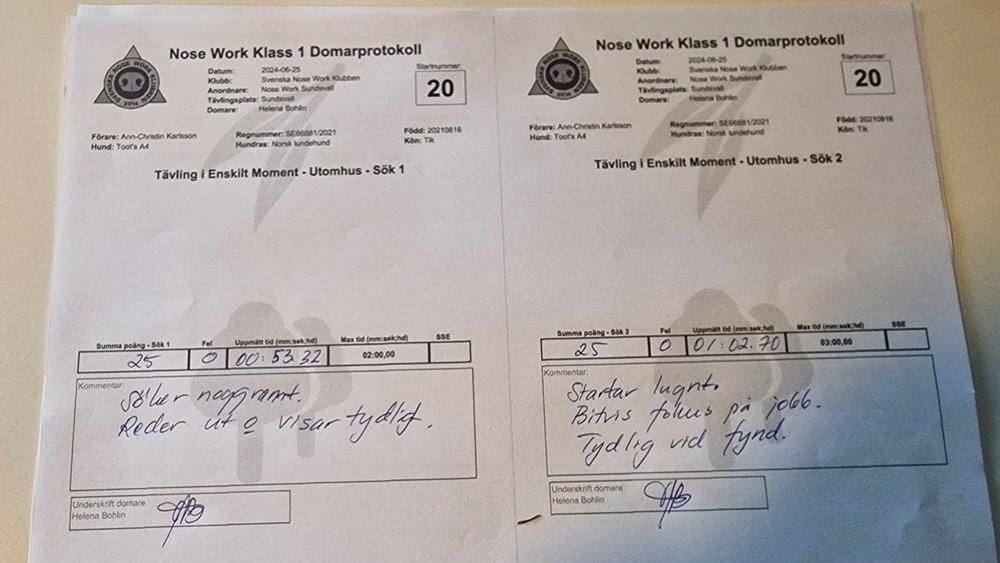 Nose Work Klass 1 Domarprotokoll
Datum: 2024-06-25
Klubb: Svenska Nose Work Klubben
Anordnare: Nose Work Sundsvall
Tävlingsplats: Sundsvall
Domare: Helena Bohlin
Startnummer:
20
SVENSKA NOSE WORK KLUBBEN
2014
Förare: Ann-Christin Karlsson
Hund: Toot's A4
Regnummer: SE66881/2021
Hundras: Norsk lundehund
Född: 20210816
Kön: Tik
Tävling i Enskilt Moment - Utomhus - Sök 1
Summa poäng - Sök 1 Fel Uppmätt tid (mm:sek;hd) Max tid (mm:sek;hd) SSE
25 0 00:53.32 02:00,00
Kommentar:
Söker noggramt.
Reder ut o visar tydlig.
Underskrift domare
Helena Bohlin
Nose Work Klass 1 Domarprotokoll
Datum: 2024-06-25
Klubb: Svenska Nose Work Klubben
Anordnare: Nose Work Sundsvall
Tävlingsplats: Sundsvall
Domare: Helena Bohlin
Startnummer:
20
SVENSKA NOSE WORK KLUBBEN
2014
Förare: Ann-Christin Karlsson
Hund: Toot's A4
Regnummer: SE66881/2021
Hundras: Norsk lundehund
Född: 20210816
Kön: Tik
Tävling i Enskilt Moment - Utomhus - Sök 2
Summa poäng - Sök 2 Fel Uppmätt tid (mm:sek;hd) Max tid (mm:sek;hd) SSE
25 0 01:02.70 03:00,00
Kommentar:
Startar lugnt.
Bitvis fokus på jobb.
Tydlig vid fynd.
Underskrift domare
Helena Bohlin